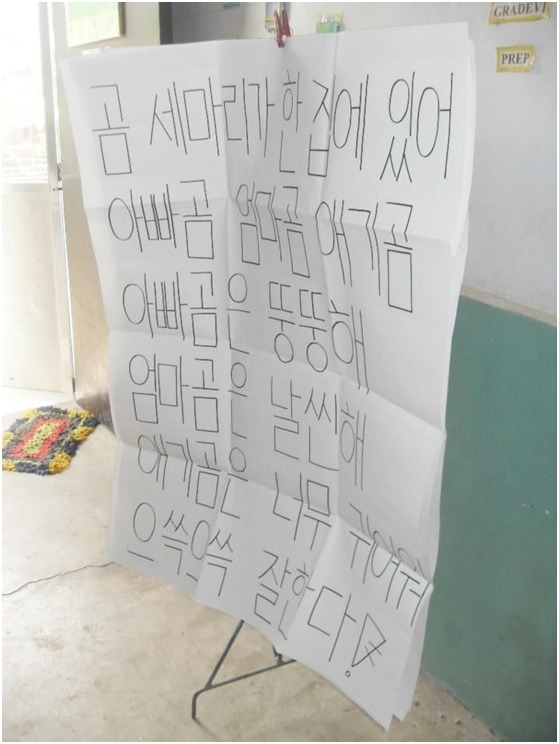 GRADE VI
PREP
곰 세마리가 한 집에 있어
아빠곰 엄마곰 애기곰
아빠곰은 뚱뚱해
엄마곰은 날씬해
애기곰은 너무 귀여워
으쓱으쓱 잘한다!